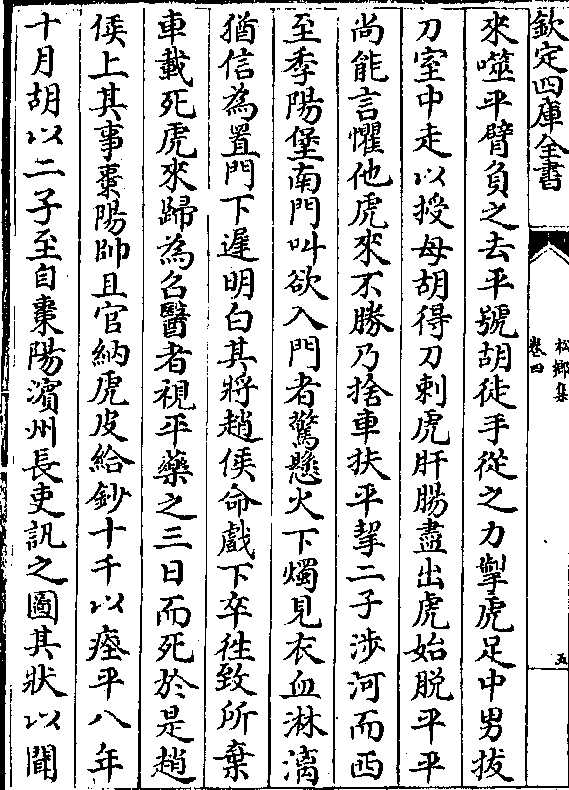 欽定四庫全書
松鄉集
卷四
五
來噬平臂負之去平號胡徒手從之力掣虎足中男拔
刀室中走以授母胡得刀刺虎肝腸盡出虎始脫平平
尚能言懼他虎來不勝乃捨車扶平挈二子涉河而西
至季陽堡南門叫欲入門者驚懸火下燭見衣血淋漓
猶信為置門下遲明白其將趙侯命戲下卒徃致所棄
車載死虎來歸為召醫者視平藥之三日而死於是趙
侯上其事棗陽帥且官納虎皮給鈔十千以瘞平八年
十月胡以二子至自棗陽濱州長吏訊之圖其狀以聞